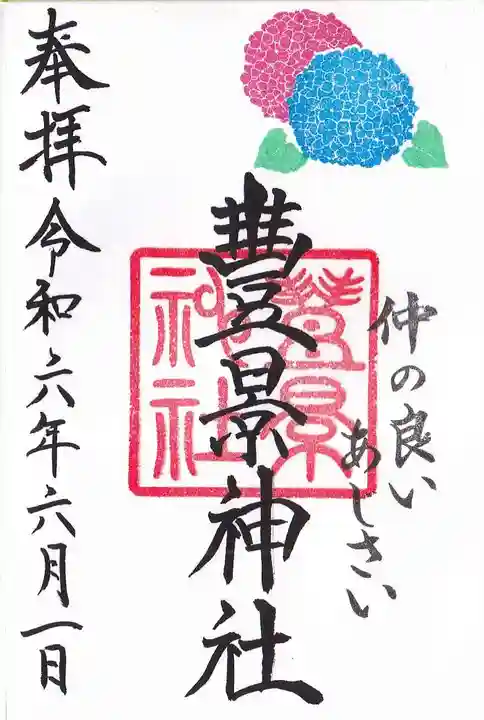 仲の良い
あじさい
豊景神社
豊景神社
奉拝 令和六年六月一日